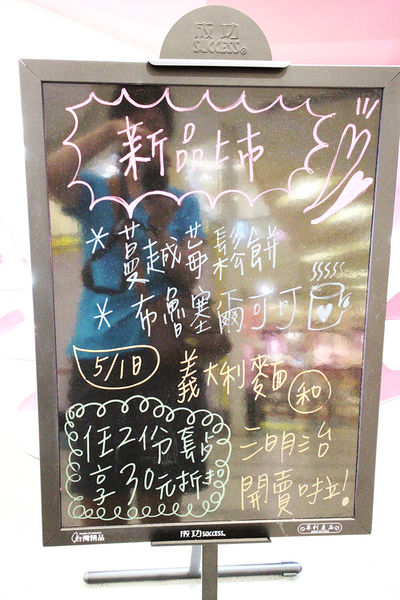 成功
SUCCESS®
新品上市
* 蔓越莓鬆餅
* 布魯塞爾可可
5/1日 義大利麵 和
任2份套點 三明治
享30元折扣 開賣啦!
台灣精品 成功 SUCCESS. 專利產品